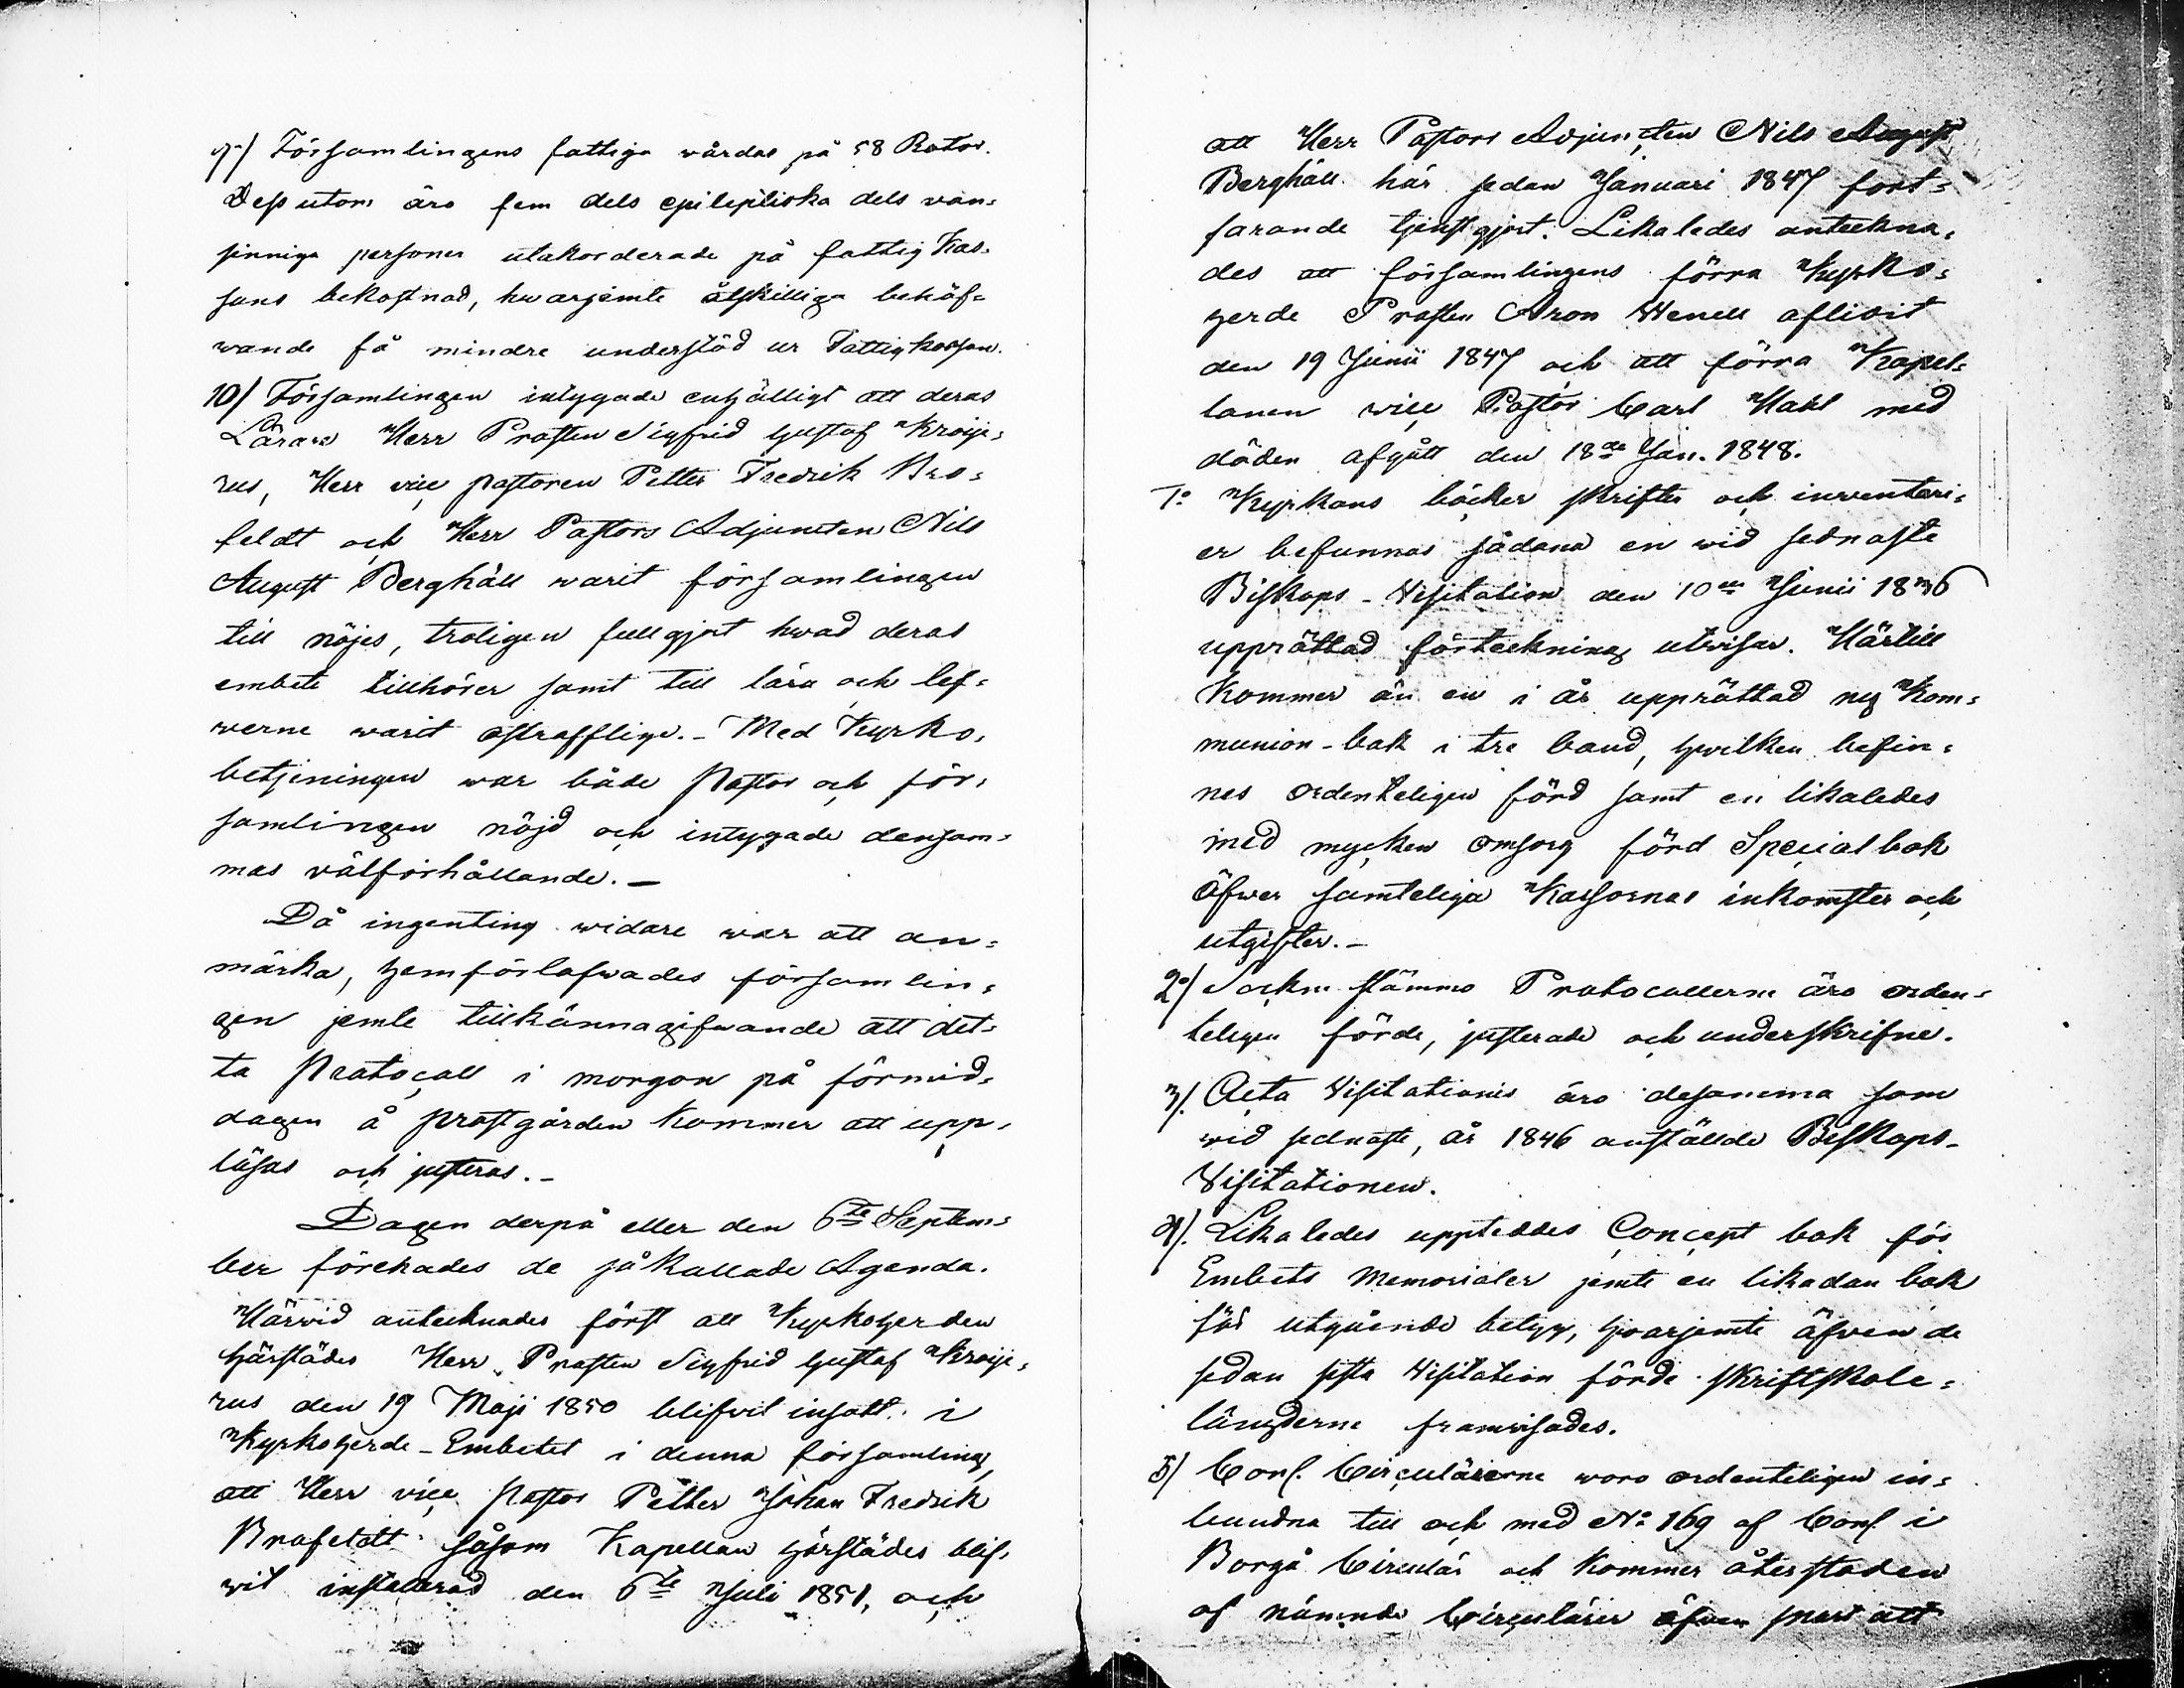 9/ Församlingens fattiga wårdas på 58 Rotor.
Dessutom äro fem dels epileptiska dels van-
sinniga personer utakorderade på fattig Kas-
sans bekostnad, hwarjemte åtskilliga behöf-
wande få mindre understöd ur Fattigkassan.
10/ Församlingen intygade enhälligt att deras
Lärare Herr Prosten Sigfrid Gustaf Kroije-
rus, Herr vice pastoren Petter Fredrik Bro-
feldt och Herr Pastors Adjuncten Nils
August Berghäll warit församlingen
till nöjes, troligen fullgjort hwad deras
embete tillhörer samt till lära och lef-
werne warit ostrafflige. - Med Kyrko-
betjeningen war både Pastor och för-
samlingen nöjd och intygade densam-
mas välförhållande. -
Då ingenting widare war att an-
märka, hemförlofwades församlin-
gen jemte tillkännagifwande att det-
ta Protocoll i morgon på förmid-
dagen å prostgården kommer att upp-
läsas och justeras. -
Dagen derpå eller den 6te Septem-
ber förehades de så kallade Agenda.
Härwid antecknades först att Kyrkoherden
härstädes Herr Prosten Sigfrid Gustaf Kroije-
rus den 19 Maji 1850 blifwit insatt i
Kyrkoherde-Embetet i denna församling,
att Herr vice pastor Petter Johan Fredrik
Brofeldt såsom Kapellan härstädes blif-
wit installerad den 6te Juli 1851, och
att Herr Pastors Adjuncten Nils August
Berghäll här sedan Januari 1847 fort-
farande tjenstgjort. Likaledes anteckna-
des att församlingens förra Kyrko-
herde Prosten Aron Henell aflidit
den 19 Junii 1847 och att förra Kapel-
lanen vice Pastor Carl Hahl med
döden afgått den 18de Jan. 1848.
1o Kyrkans böcker skrifter och inventari-
er befunnos sådana en wid sednaste
Biskops-Visitation den 10de Junii 1846
upprättad förteckning utvisar. Härtill
kommer än en i år upprättad ny Kom-
munion-bok i tre band, hwilken befin-
nes ordenteligen förd samt en likaledes
med mycken omsorg förd Specialbok
öfwer samteliga Kassornas inkomster och
utgifter. -
2o/ Sockne stämmo Protocollerne äro orden-
teligen förde, justerade och underskrifne.
3/. Acta Visitationis äro desamma som
wid sednaste, år 1846 anställde Biskops-
Visitationen.
4/. Likaledes uppteddes Concept bok för
Embets Memorialer jemte en likadan bok
för utgående betyg, hwarjemte äfwen de
sedan sista Visitation förde skriftskole-
längderne framwisades.
5/ Cons. Circulärerne woro ordenteligen in-
bundna till och med No 169 af Cons. i
Borgå Circulär och kommer återstoden
af nämnde Circulärer äfwen snart att